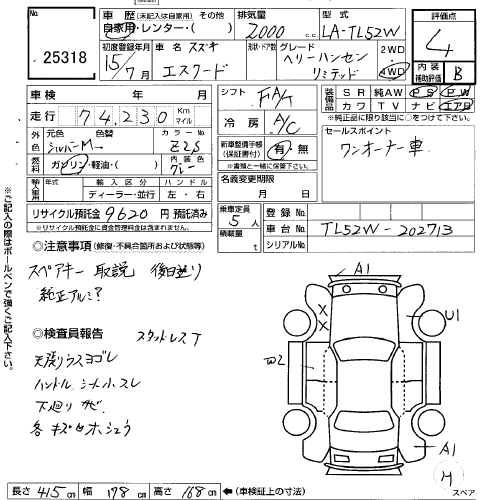 No.
25318
車歴 (未記入は自家用) その他
自家用・レンター・( )
排気量
2000 c.c.
型式
LA-TL52W
評価点
4
内装補助評価 B
初度登録年月
15年7月
車名 スズキ
エスクード
形状・ドア数
グレード
ヘリーハンセン
リミテッド
2WD
4WD
車検 年 月
走行 74,230 Km マイル
外色 元色 シルバーM
色替
カラーNo. Z2S
燃料 ガソリン・軽油・( )
内装色 グレー
輸入車 年式
輸入区分 ディーラー・並行
ハンドル 左・右
リサイクル預託金 9620 円 預託済み
※リサイクル預託金に資金管理料金は含まれません。
シフト FAT
冷房 A/C
新車整備手帳 (保証書付) 有・無
※書類と一緒に保管下さい。
名義変更期限
月 日
乗車定員 5人
積載量 t
装備品 SR 純AW PS PW
カワ TV ナビ エアB
※純正品に限り該当に○をつけて下さい。
セールスポイント
ワンオーナー車
登録No.
車台No. TL52W-202713
シリアルNo.
◎注意事項 (修復・不具合箇所および状態等)
スペアキー 取説 後日送り
純正アルミ?
◎検査員報告
スタッドレスT
天張りウスヨゴレ
ハンドル シート小スレ
下廻りサビ
各キズセホシュウ
A1
U1
W2
A1
H
スペア
長さ 415 cm 幅 178 cm 高さ 168 cm ←(車検証上の寸法)
※ご記入の際はボールペンで強くご記入下さい。